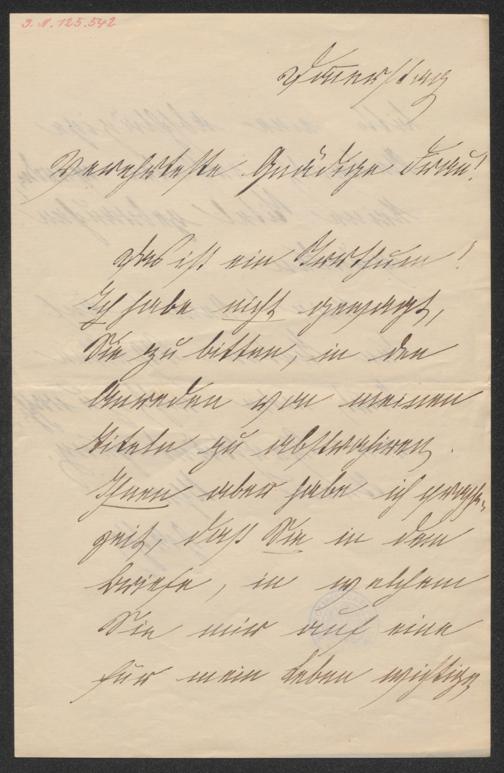 I. N. 125.542
Donnerstag
Verehrteste Gnädige Frau!
Das ist ein Irrthum!
Ich habe nicht gewagt,
Sie zu bitten, in den
Anreden von meinen
Titeln zu abstrahiren.
Ihnen aber habe ich
zeit, daß Sie in dem
Briefe, in welchem
Sie mir auf eine
für mein Leben wichtige